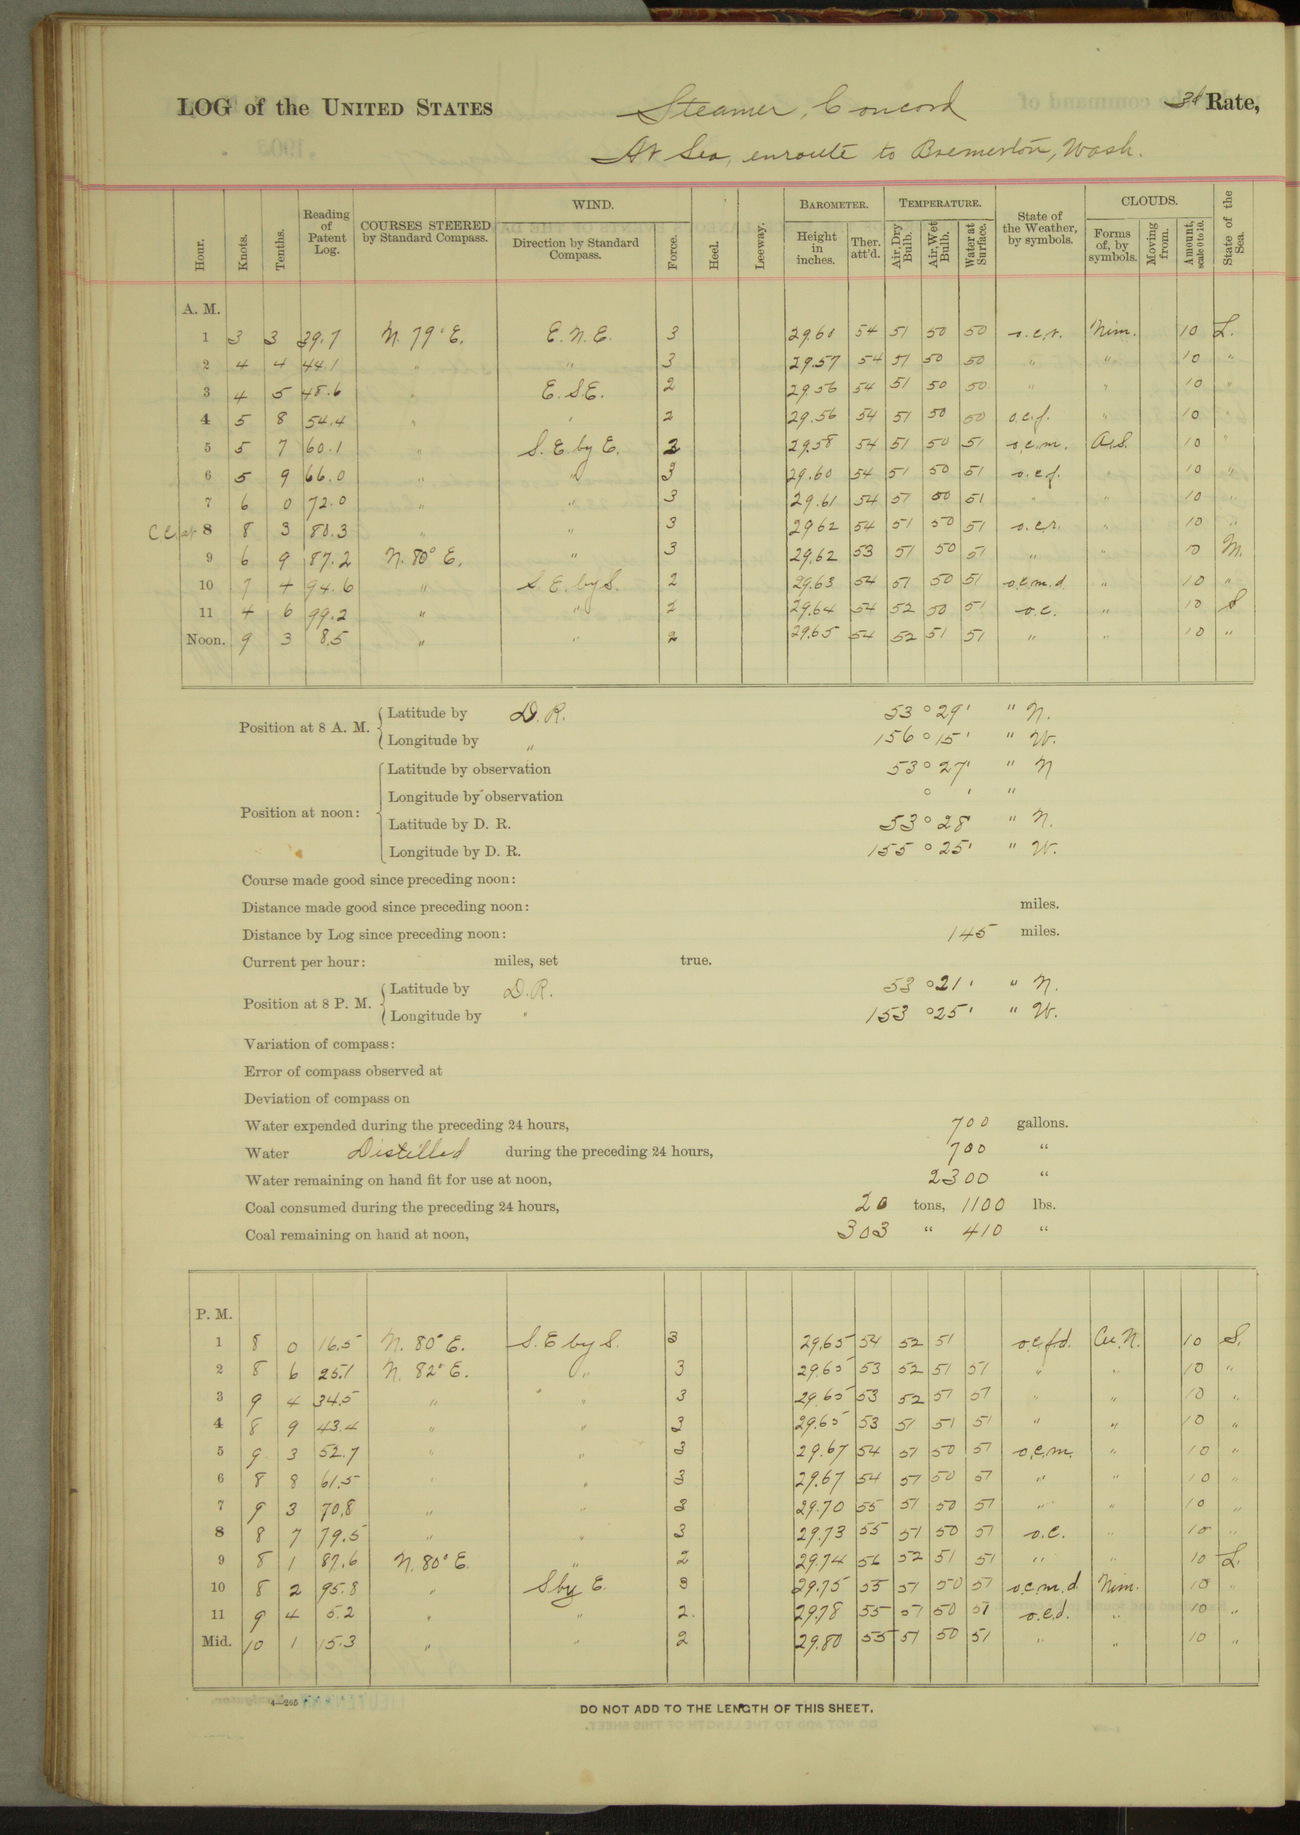 LOG of the UNITED STATES Steamer, Concord 3d Rate,
At Sea, enroute to Bremerton, Wash.
Hour. Knots. Tenths. Reading of Patent Log. COURSES STEERED by Standard Compass. WIND. Direction by Standard Compass. Force. Heel. Leeway. BAROMETER. Height in inches. Ther. att'd. TEMPERATURE. Air, Dry Bulb. Air, Wet Bulb. Water at Surface. State of the Weather, by symbols. CLOUDS. Forms of, by symbols. Moving from. Amount, scale 0 to 10. State of the Sea.
A. M.
1 3 3 39.7 N. 79° E. E. N. E. 3 29.60 54 51 50 50 o.c.r. Nim. 10 L.
2 4 4 44.1 " " 3 29.57 54 51 50 50 " " 10 "
3 4 5 48.6 " E. S. E. 2 29.56 54 51 50 50 " " 10 "
4 5 8 54.4 " " 2 29.56 54 51 50 50 o.c.f. " 10
5 5 7 60.1 " S. E. by E. 2 29.58 54 51 50 51 o.c.m. A.S. 10 "
6 5 9 66.0 " " 3 29.60 54 51 50 51 o.c.f. " 10 "
7 6 0 72.0 " " 3 29.61 54 51 50 51 " " 10 "
C C at 8 8 3 80.3 " " 3 29.62 54 51 50 51 o.c.r. " 10 "
9 6 9 87.2 N. 80° E. " 3 29.62 53 51 50 51 " " 10 M.
10 7 4 94.6 " S. E. by S. 2 29.63 54 51 50 51 o.c.m.d " 10 "
11 4 6 99.2 " " 2 29.64 54 52 50 51 o.c. " 10 S
Noon. 9 3 8.5 " " 2 29.65 54 52 51 51 " " 10 "
Position at 8 A. M. Latitude by D. R. 53 ° 29 ' " N.
Longitude by " 156 ° 15 ' " W.
Position at noon: Latitude by observation 53 ° 27 ' " N
Longitude by observation ° ' "
Latitude by D. R. 53 ° 28 " N.
Longitude by D. R. 155 ° 25 ' " W.
Course made good since preceding noon:
Distance made good since preceding noon: miles.
Distance by Log since preceding noon: 145 miles.
Current per hour: miles, set true.
Position at 8 P. M. Latitude by D. R. 53 ° 21 ' " N.
Longitude by " 153 ° 25 ' " W.
Variation of compass:
Error of compass observed at
Deviation of compass on
Water expended during the preceding 24 hours, 700 gallons.
Water Distilled during the preceding 24 hours, 700 "
Water remaining on hand fit for use at noon, 2300 "
Coal consumed during the preceding 24 hours, 20 tons, 1100 lbs.
Coal remaining on hand at noon, 303 " 410 "
P. M.
1 8 0 16.5 N. 80° E. S. E by S. 3 29.65 54 52 51 o.c.f.d. Cu. N. 10 S.
2 8 6 25.1 N. 82° E. " 3 29.65 53 52 51 51 " " 10 "
3 9 4 34.5 " " 3 29.65 53 52 51 51 " " 10 "
4 8 9 43.4 " " 3 29.65 53 51 51 51 " " 10 "
5 9 3 52.7 " " 3 29.67 54 51 50 51 o.c.m. " 10 "
6 8 8 61.5 " " 3 29.67 54 51 50 51 " " 10 "
7 9 3 70.8 " " 3 29.70 55 51 50 51 " " 10 "
8 8 7 79.5 " " 3 29.73 55 51 50 51 o.c. " 10 "
9 8 1 87.6 N. 80° E. " 2 29.74 56 52 51 51 " " 10 L.
10 8 2 95.8 " S by E. 3 29.75 55 51 50 51 o.c.m.d Nim. 10 "
11 9 4 5.2 " " 2. 29.78 55 51 50 51 o.c.d. " 10 "
Mid. 10 1 15.3 " " 2 29.80 55 51 50 51 " " 10 "
4—265
DO NOT ADD TO THE LENGTH OF THIS SHEET.